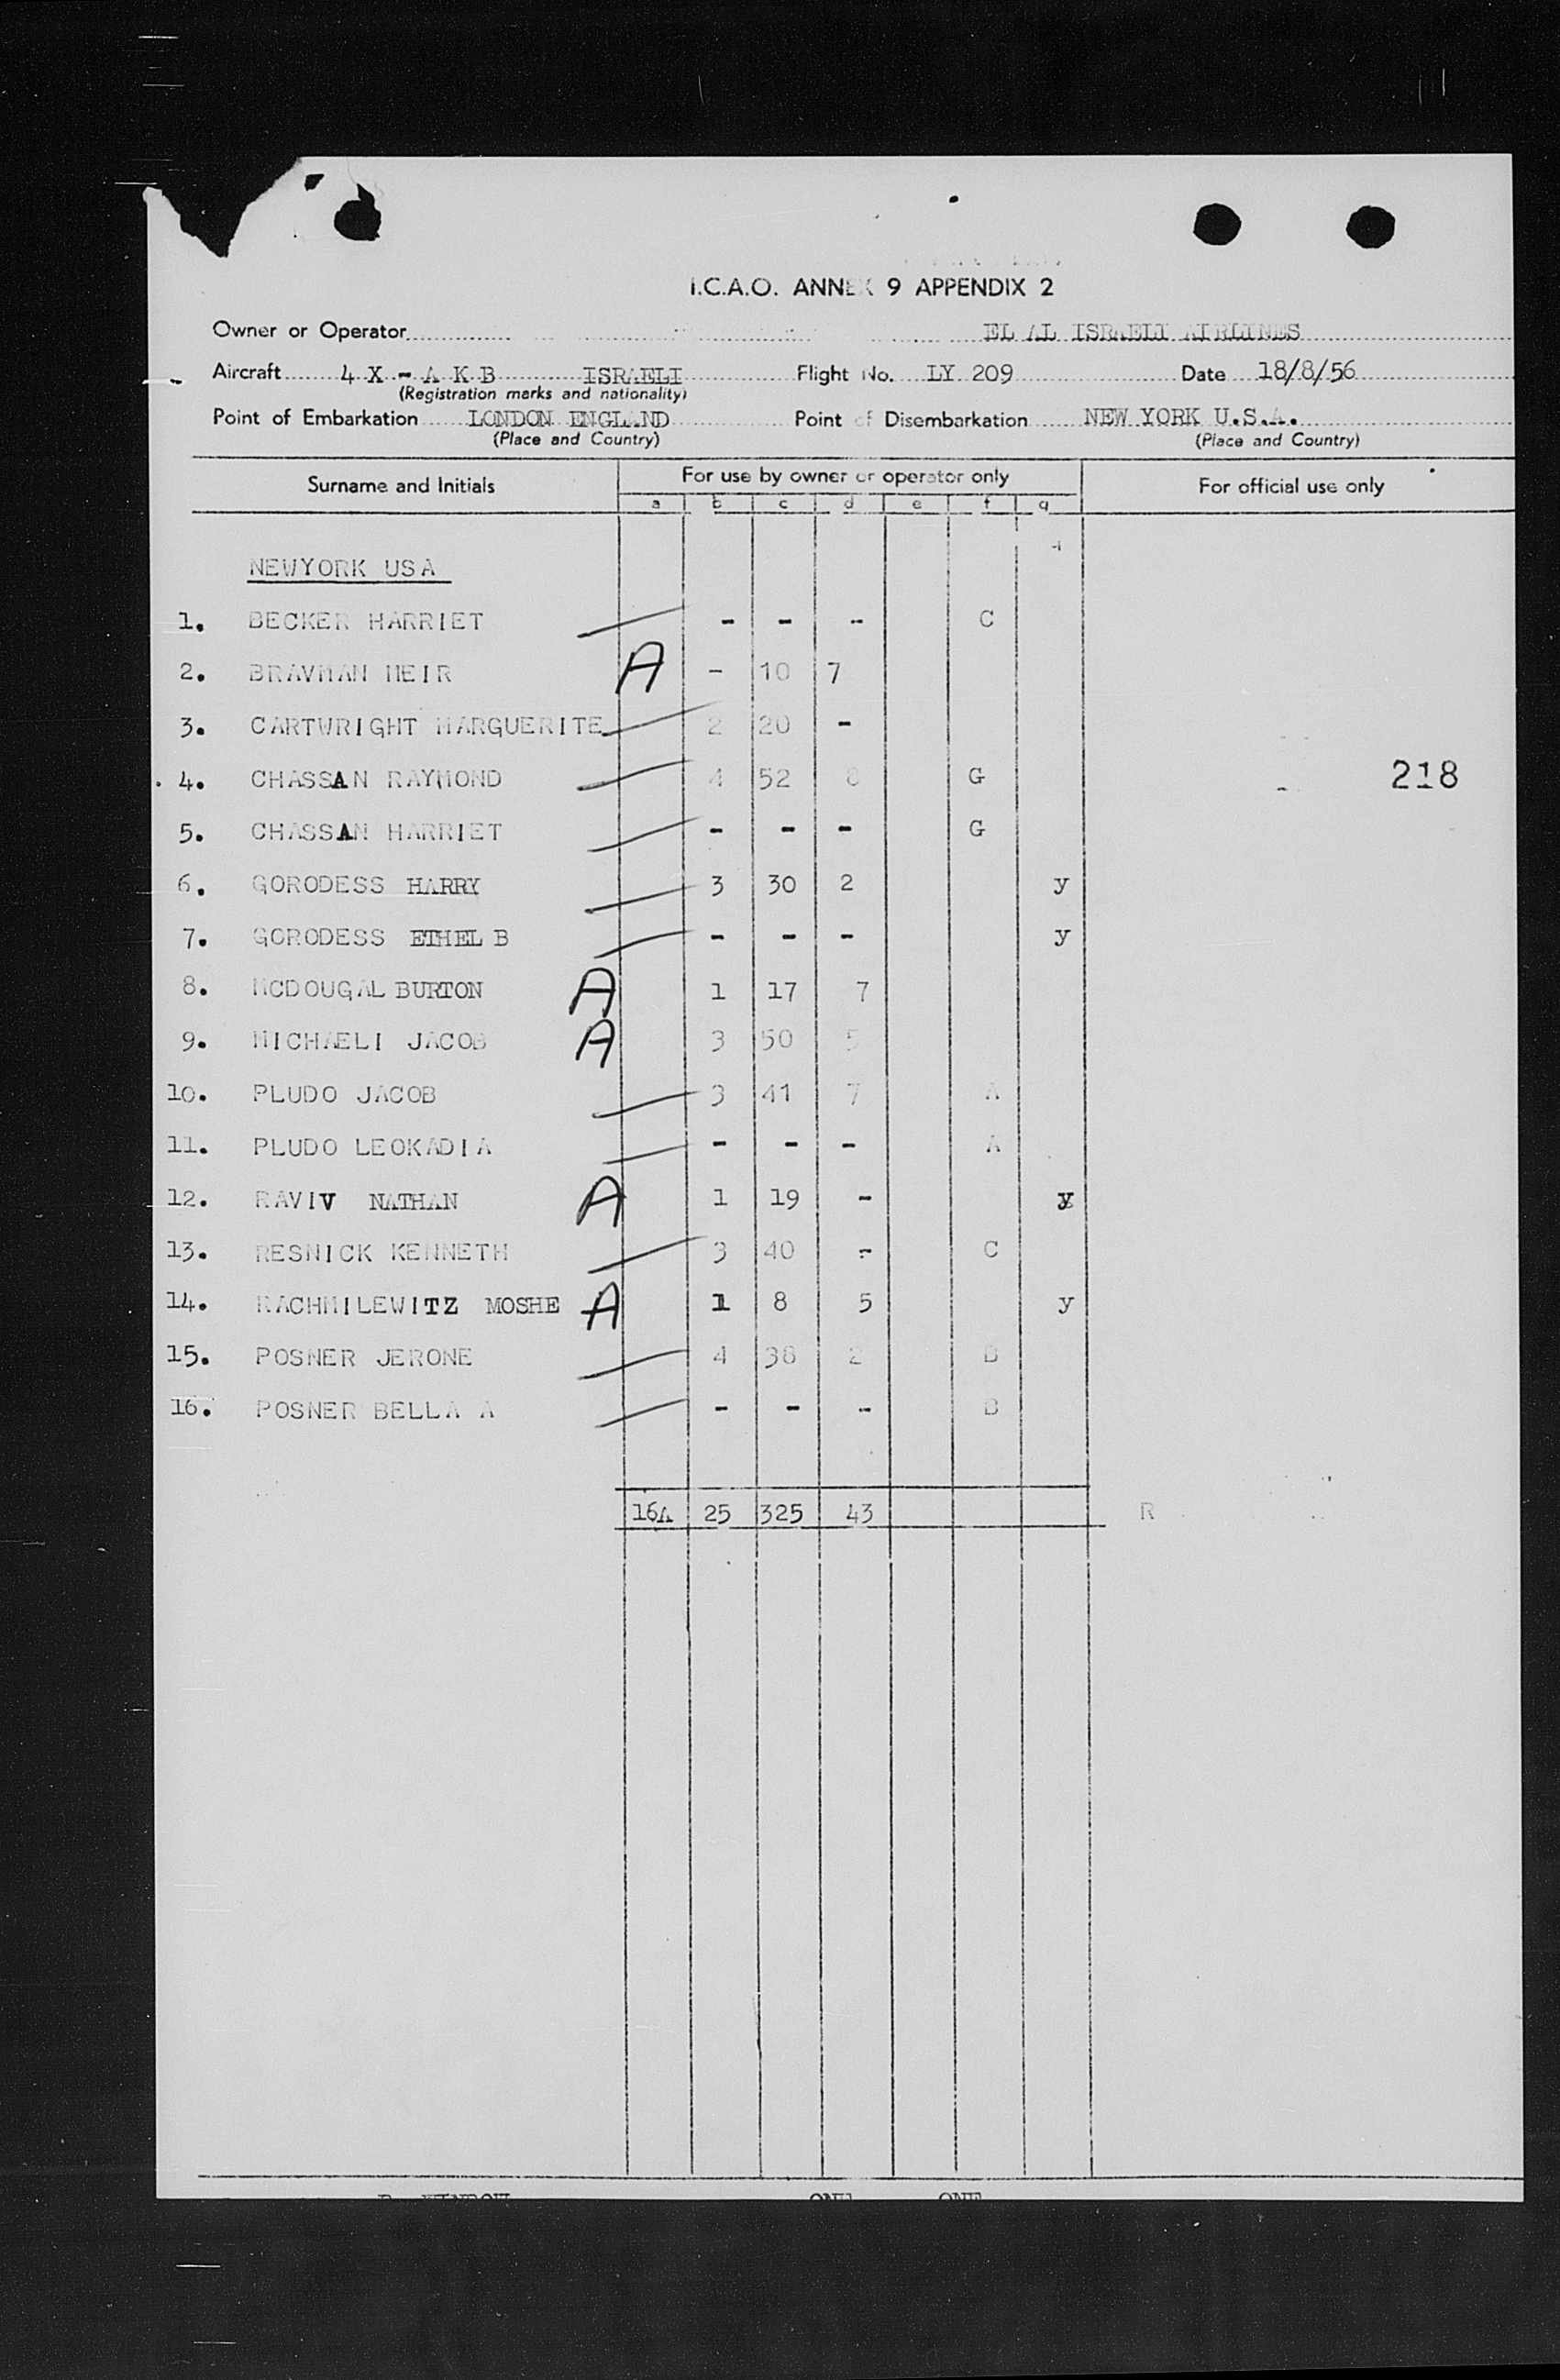 I.C.A.O. ANNEX 9 APPENDIX 2
Owner or Operator EL AL ISRAELI AIRLINES
Aircraft 4 X - A K B ISRAELI Flight No. LY 209 Date 18/8/56
(Registration marks and nationality)
Point of Embarkation LONDON ENGLAND Point of Disembarkation NEW YORK U.S.A.
(Place and Country) (Place and Country)
Surname and Initials For use by owner or operator only For official use only
a b c d e f g
NEWYORK USA
1. BECKER HARRIET - - - C
2. BRAVMAN MEIR A - 10 7
3. CARTWRIGHT MARGUERITE 2 20 -
4. CHASSAN RAYMOND 4 52 8 G 218
5. CHASSAN HARRIET - - - G
6. GORODESS HARRY 3 30 2 y
7. GORODESS ETHEL B - - - y
8. MCDOUGAL BURTON A 1 17 7
9. MICHAELI JACOB A 3 50 5
10. PLUDO JACOB 3 41 7 A
11. PLUDO LEOKADIA - - - A
12. RAVIV NATHAN A 1 19 - y
13. RESNICK KENNETH 3 40 - C
14. RACHMILEWITZ MOSHE A 1 8 5 y
15. POSNER JERONE 4 38 2 B
16. POSNER BELLA A - - - B
16A 25 325 43 R